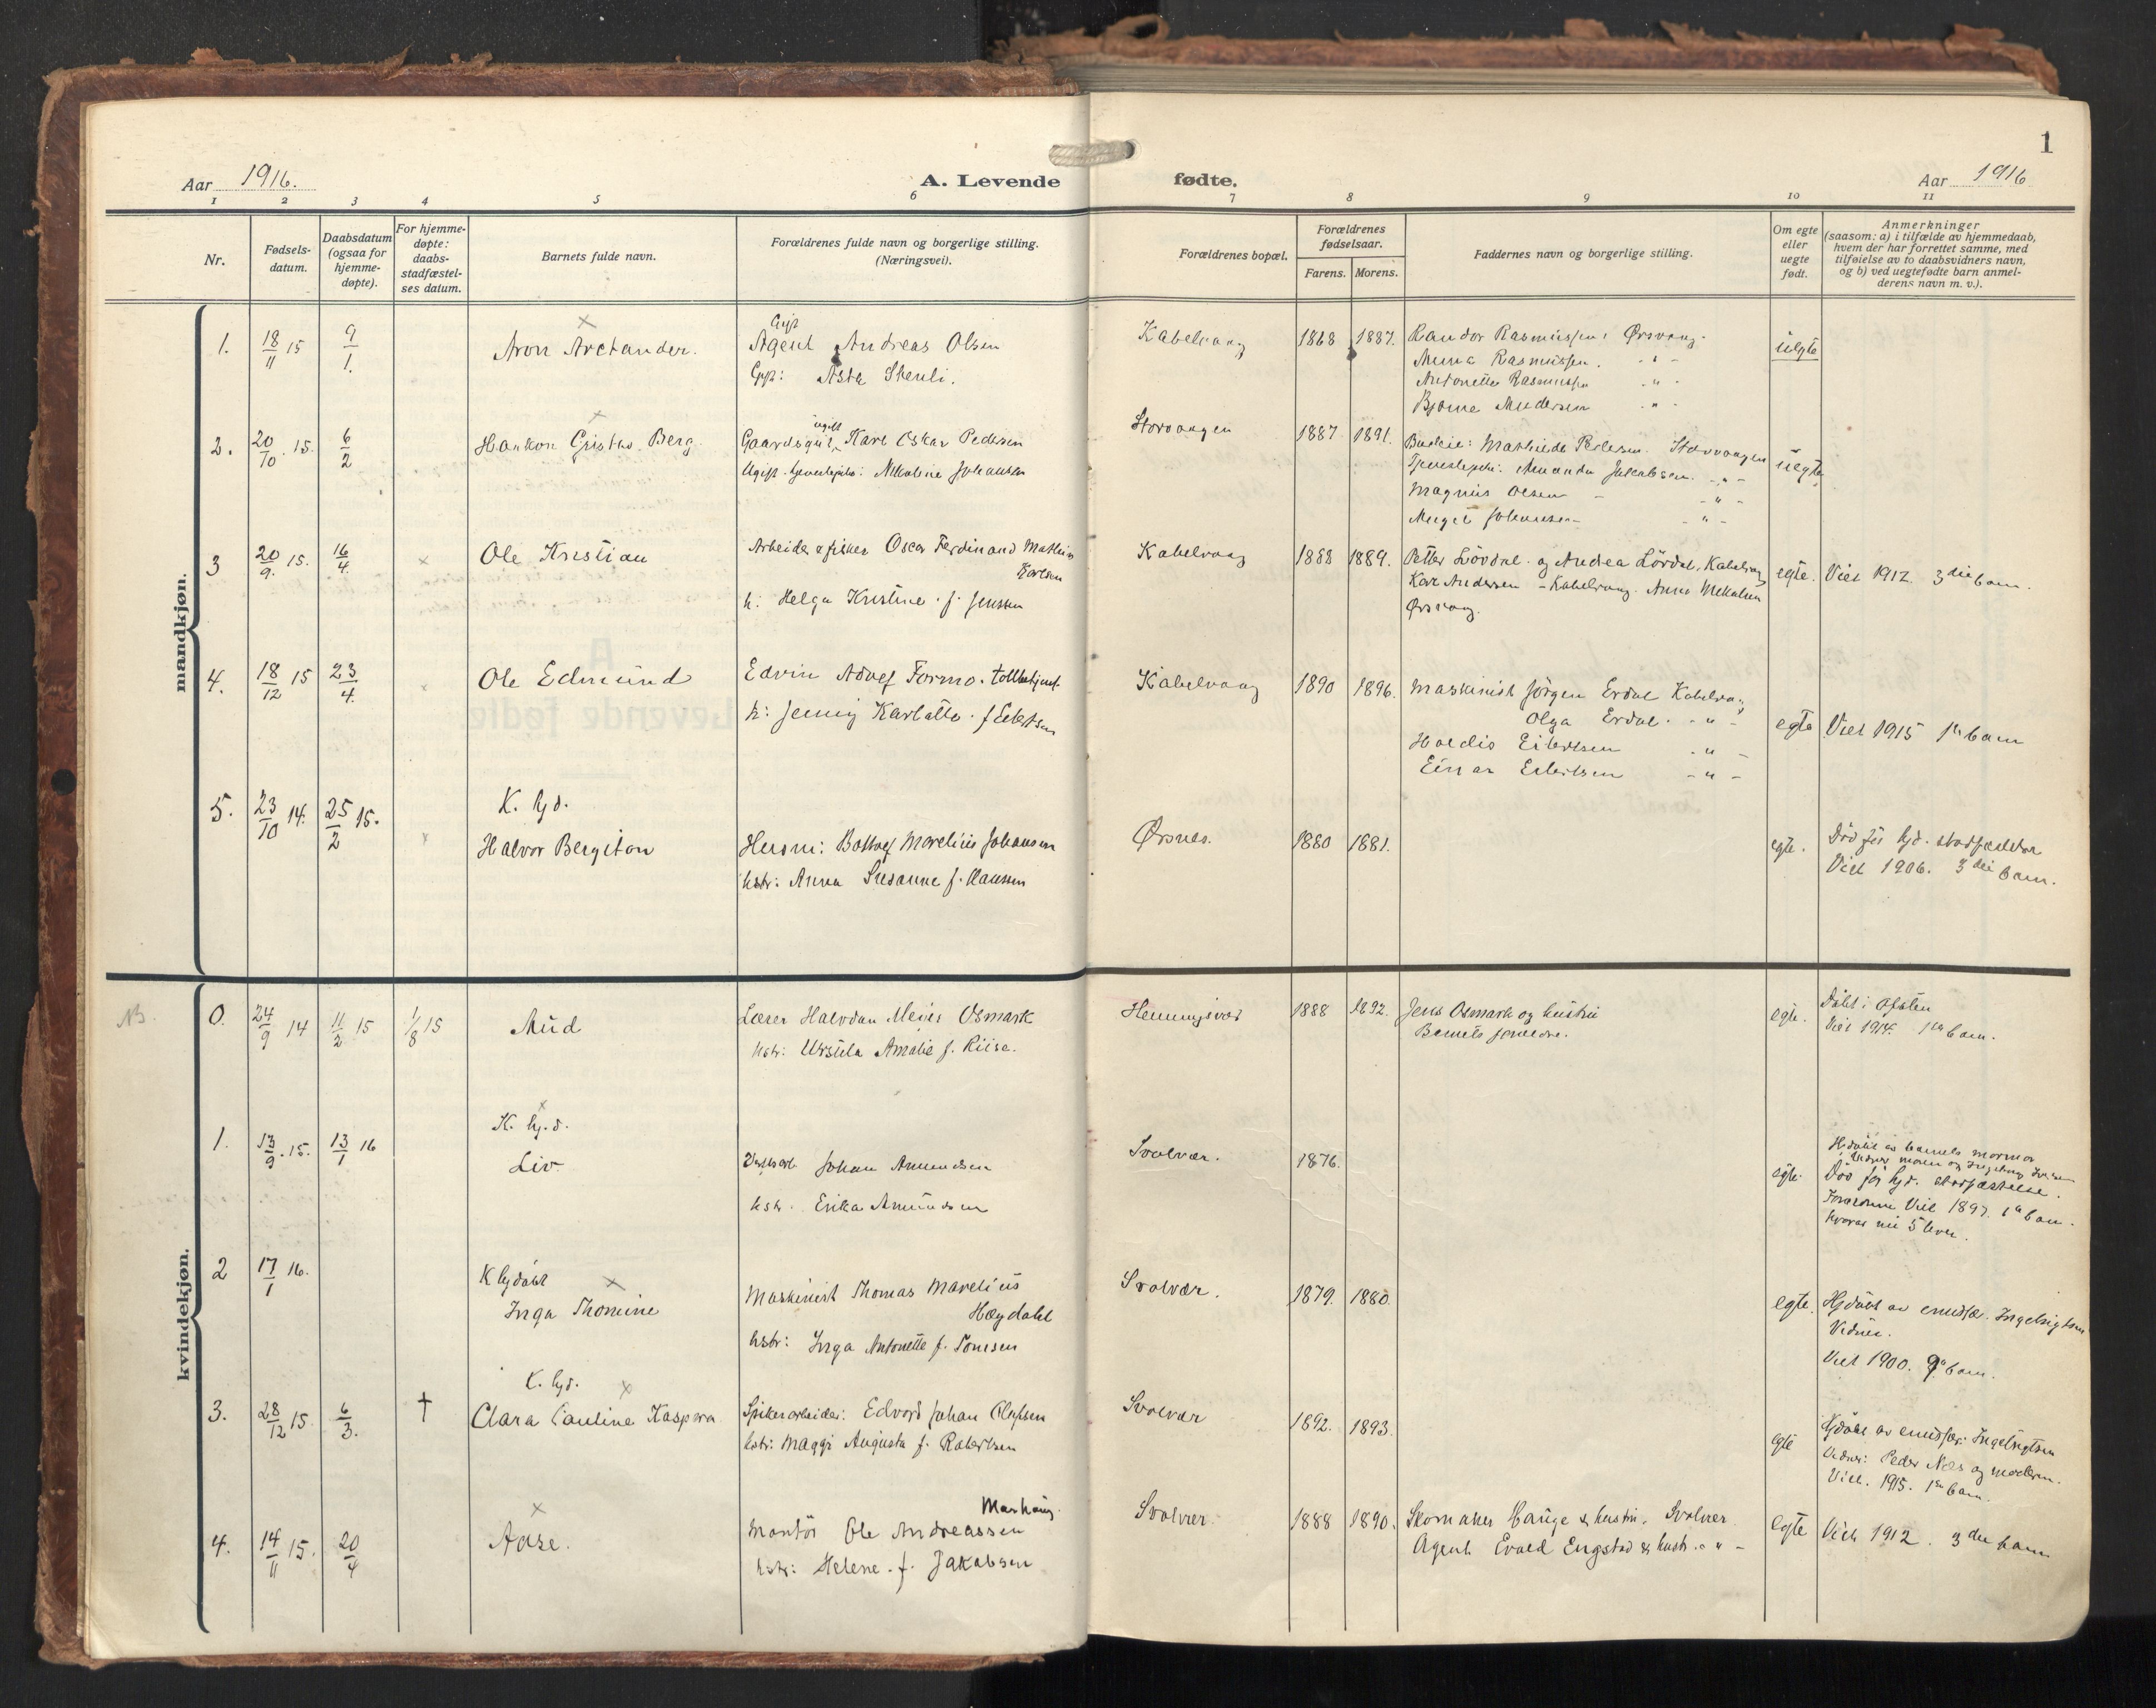 1
Aar 1916. A. Levende fødte. Aar 1916
1 2 3 4 5 6 7 8 9 10 11
Nr.
Fødsels-
datum.
Daabsdatum
(ogsaa for
hjemme-
døpte).
For hjemme-
døpte:
daabs-
stadfæstel-
ses datum.
Barnets fulde navn.
Forældrenes fulde navn og borgerlige stilling.
(Næringsvei).
Forældrenes bopæl.
Forældrenes
fødselsaar.
Farens. Morens.
Faddernes navn og borgerlige stilling.
Om egte
eller
uegte
født.
Anmerkninger
(saasom: a) i tilfælde av hjemmedaab,
hvem der har forrettet samme, med
tilføielse av to daabsvidners navn,
og b) ved uegtefødte barn anmel-
derens navn m. v.).
mandkjøn.
1. 18/11 15 9/1. Aron Arctander.
Gift
Agent Andreas Olsen
Gift: Asta Stenli.
Kabelvaag 1868 1887.
Rasmussen, Ørsvaag.
Anna Rasmussen. - " -
Antonette Rasmussen - " -
Bjarne Andersen - " -
uegte
2. 20/10 15. 6/2 Haakon Berg.
ugift
Karl Oskar Pedersen
Ugift Johansen
Storvaagen 1887 1891.
Budeie: Mathilde Storvaagen
Amanda Jakobsen. - " -
Magnus Olsen - " -
Johansen - " -
uegte
3 20/9. 15. 16/4. × Ole Kristian
Arbeider & fisker Oscar Ferdinand
Karlsen
h: Helga Kristine f. Jenssen
Kabelvaag 1888 1889.
Petter Lövdal og Andrea Lövdal, Kabelvaag
Karl Andersen - Kabelvaag. Anna
Ørsvaag.
egte. Viet 1912. 3die barn.
4. 18/12 15 23/4. × Ole Edmund
Edvin Adolf Formo. tollbetjent.
h: Jenny f. Eilertsen
Kabelvaag 1890 1896.
Maskinist Jörgen Erdal Kabelvaag
Olga Erdal. - " -
Hordis Eilertsen - " -
Einar Eilertsen - " -
egte Viet 1915 1ste barn
5. 23/10 14. 25/2 15. ×
K. hjd.
Halvor Bergiton
Husm: Marelius Johansen
hstr: Anna Susanne f. Clausen
Ørsnes. 1880 1881.
egte.
Död för hjd. stadfæstelse
Viet 1906. 3die barn.
kvindekjøn.
NB. 0. 24/9 14 11/2 15 1/8 15 Aud
Lærer Halvdan Meier Osmark
hstr: Ursula Amalie f. Riise.
Henningsvær 1888 1892.
Jens Osmark og hustru
Barnets foreldre.
egte.
Döbt i Ofoten
Viet 1914. 1ste barn.
1. 13/9 15. 13/1 16
K. hj.d.
Liv
Johan Amundsen
hstr. Erika Amundsen
Svolvær. 1876.
egte.
Hjdöbt av barnets mormor
Död för hjd. stadfæstelse.
Viet 1897.
hvorav nu 5 lever.
2 17/1 16.
K hjdöbt
Inga Thomine
Maskinist Thomas Marelius
Høydahl
hstr: Inga Antonette f. Tonesen
Svolvær. 1879. 1880.
egte. Hjdöbt av Ingebrigtsen
Vidner.
Viet 1900. 9de barn.
3. 28/12 15. 6/3. †
K. hjd.
Clara Pauline Kaspara
Edvard Johan Olufsen
hstr: Maggi Augusta f. Robertsen
Svolvær 1892. 1893.
egte
Hjdöbt av Ingebrigtsen
Vidner: Peder Næs og moderen.
Viet. 1915. 1ste barn.
4. 14/11 15. 20/4 Aase.
Montör Ole Andreassen
hstr: Helene f. Jakobsen
Svolvær 1888 1890.
Skomaker Hauge & hustru, Svolvær
Agent Evald Engstad & hustr. - " -
egte Viet 1912. 3die barn